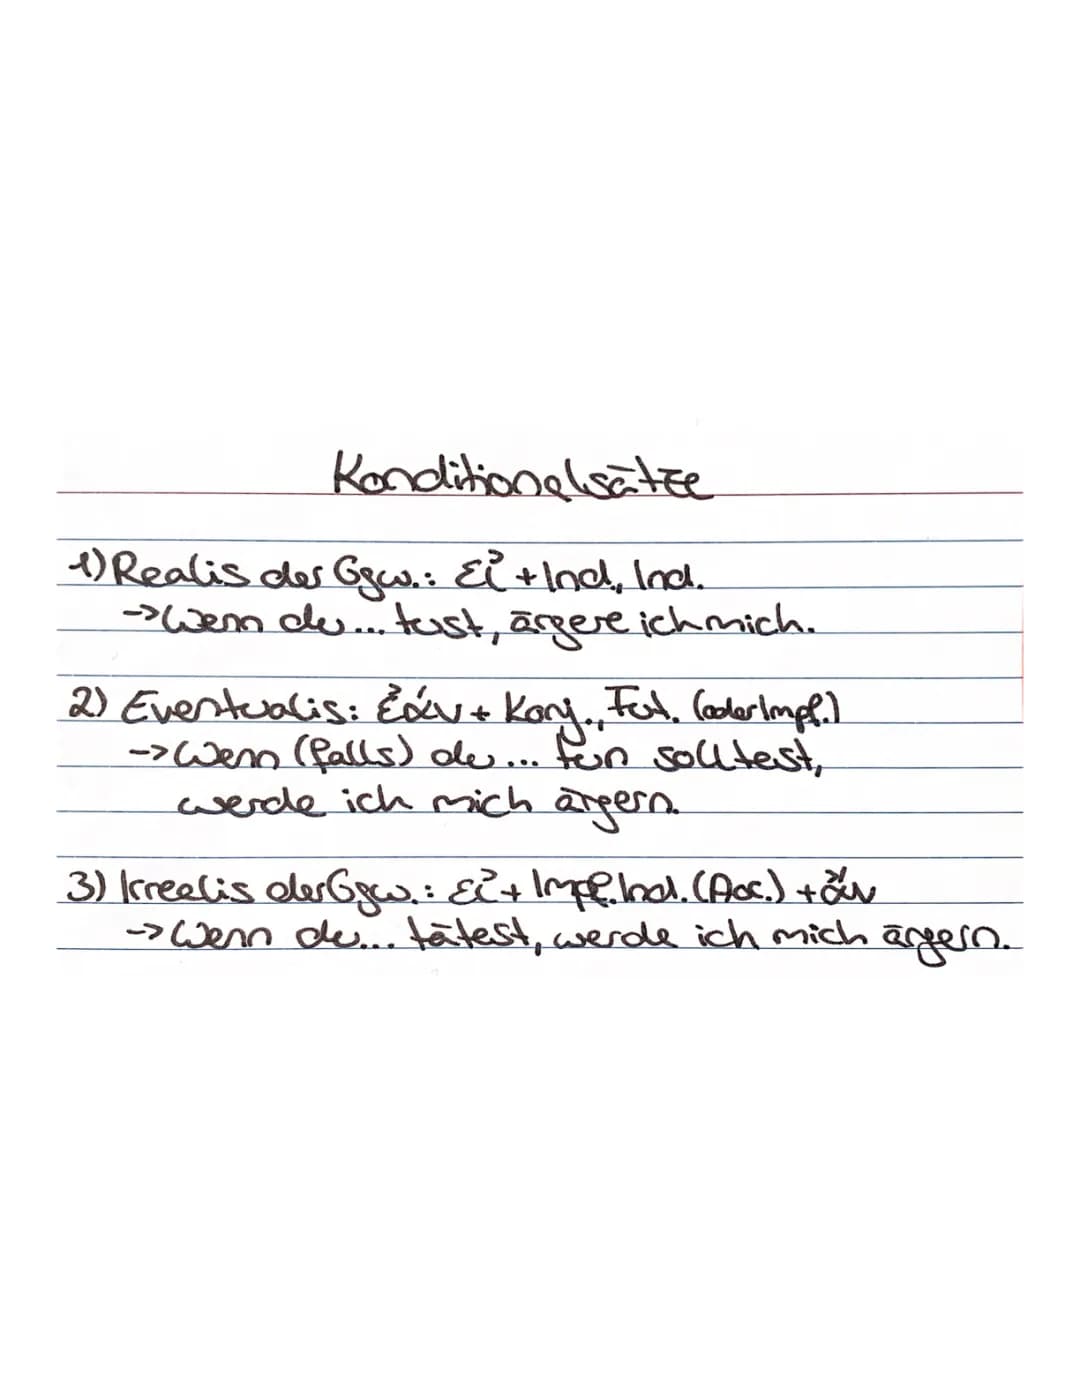 Konditionalsätze
1) Realis der Ggw.: εἰ + Ind., Ind.
-> Wenn du ... tust, ärgere ich mich.
2) Eventualis: ἐάν + Konj., Fut. (oder Impf.)
-> Wenn (falls) du ... tun solltest,
werde ich mich ärgern.
3) Irrealis der Ggw.: εἰ + Impf. Ind. (Aor.) + ἄν
-> Wenn du ... tätest, werde ich mich ärgern.